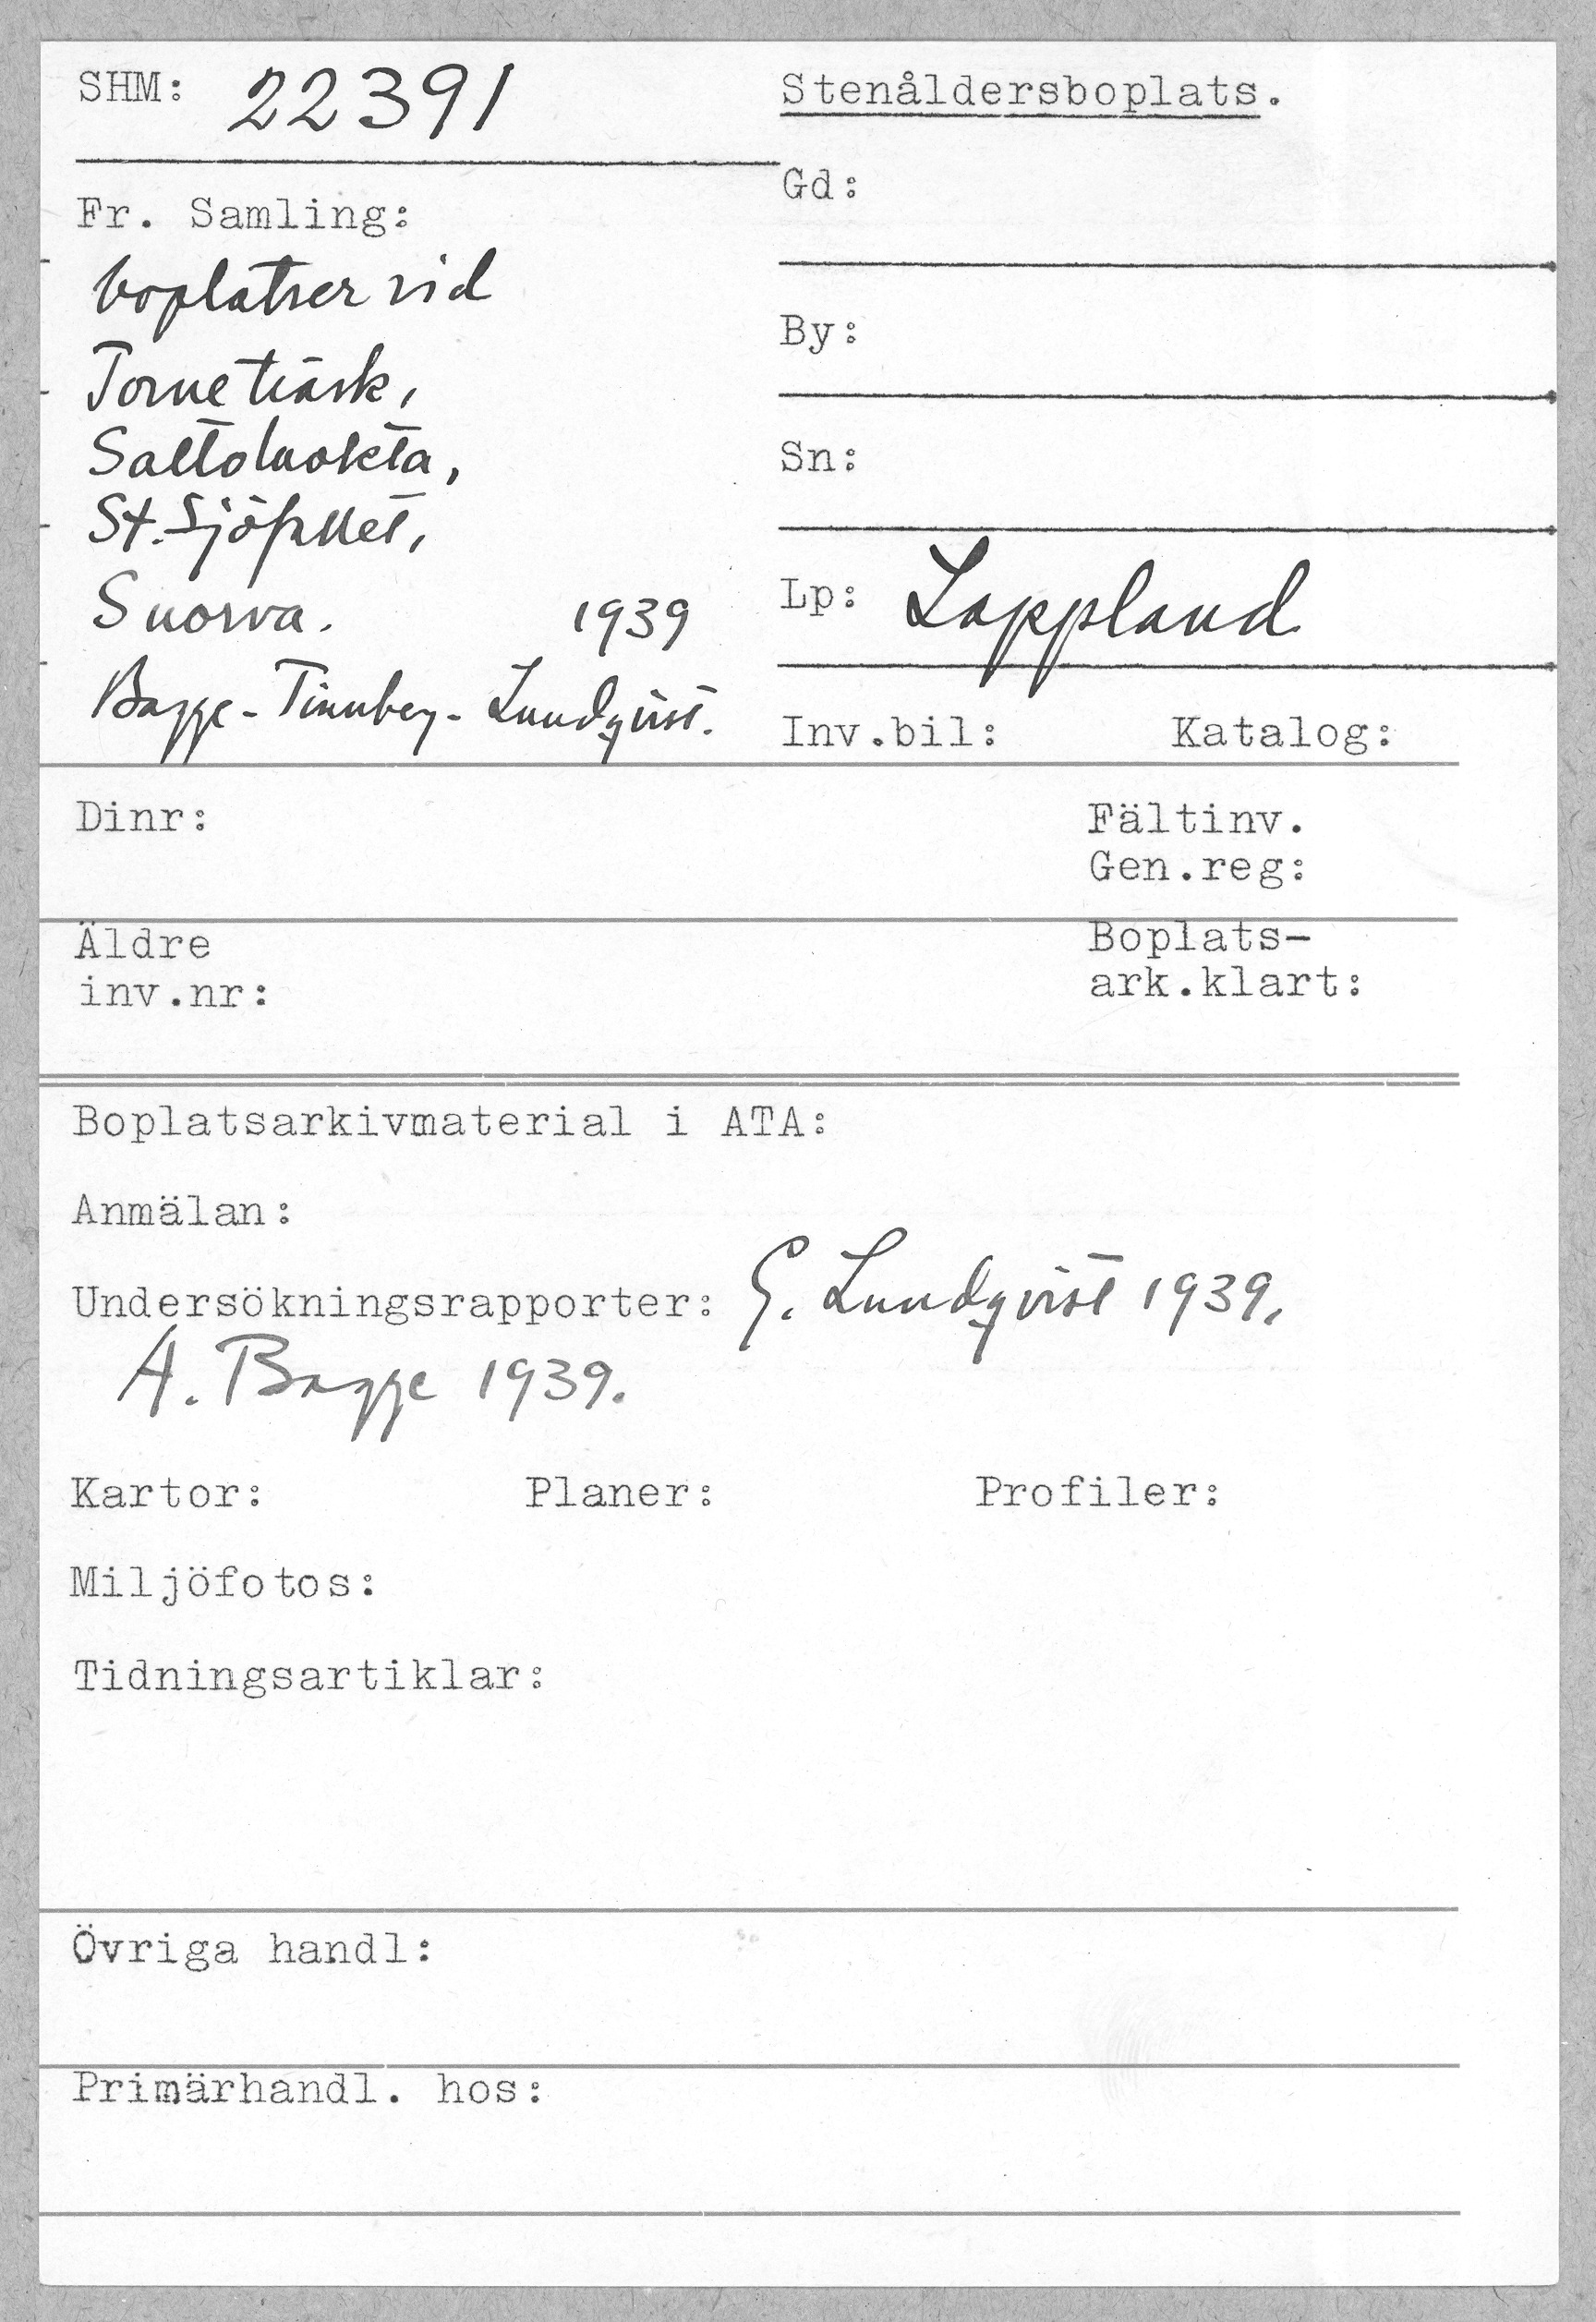 SHM: 22391
Stenåldersboplats.
Fr. Samling:
boplatser vid
Torneträsk,
Saltoluokta,
St. Sjöfallet,
Suorva. 1939
Bagge - Tinnberg - Lundqvist.
Gd:
By:
Sn:
Lp: Lappland
Inv.bil: Katalog:
Dinr:
Fältinv.
Gen.reg:
Äldre
inv.nr:
Boplats-
ark.klart:
Boplatsarkivmaterial i ATA:
Anmälan:
Undersökningsrapporter: G. Lundqvist 1939,
A. Bagge 1939.
Kartor: Planer: Profiler:
Miljöfotos:
Tidningsartiklar:
Övriga handl:
Primärhandl. hos: